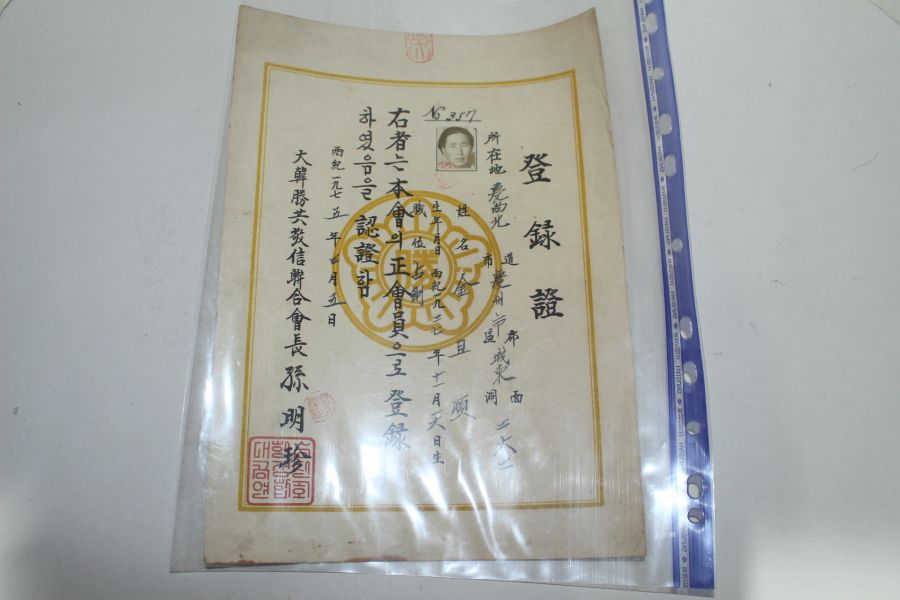 登錄證
所在地 慶北 道 市 慶州 市 郡 區 城東 面 洞
姓名 金且順
生年月日 西紀一九三七年十一月 日生
職位
№ 357
右者는 本會의 正會員으로 登錄
하였음을 認證함
西紀一九七五年 月五日
大韓勝共敬信聯合會長 孫明
勝